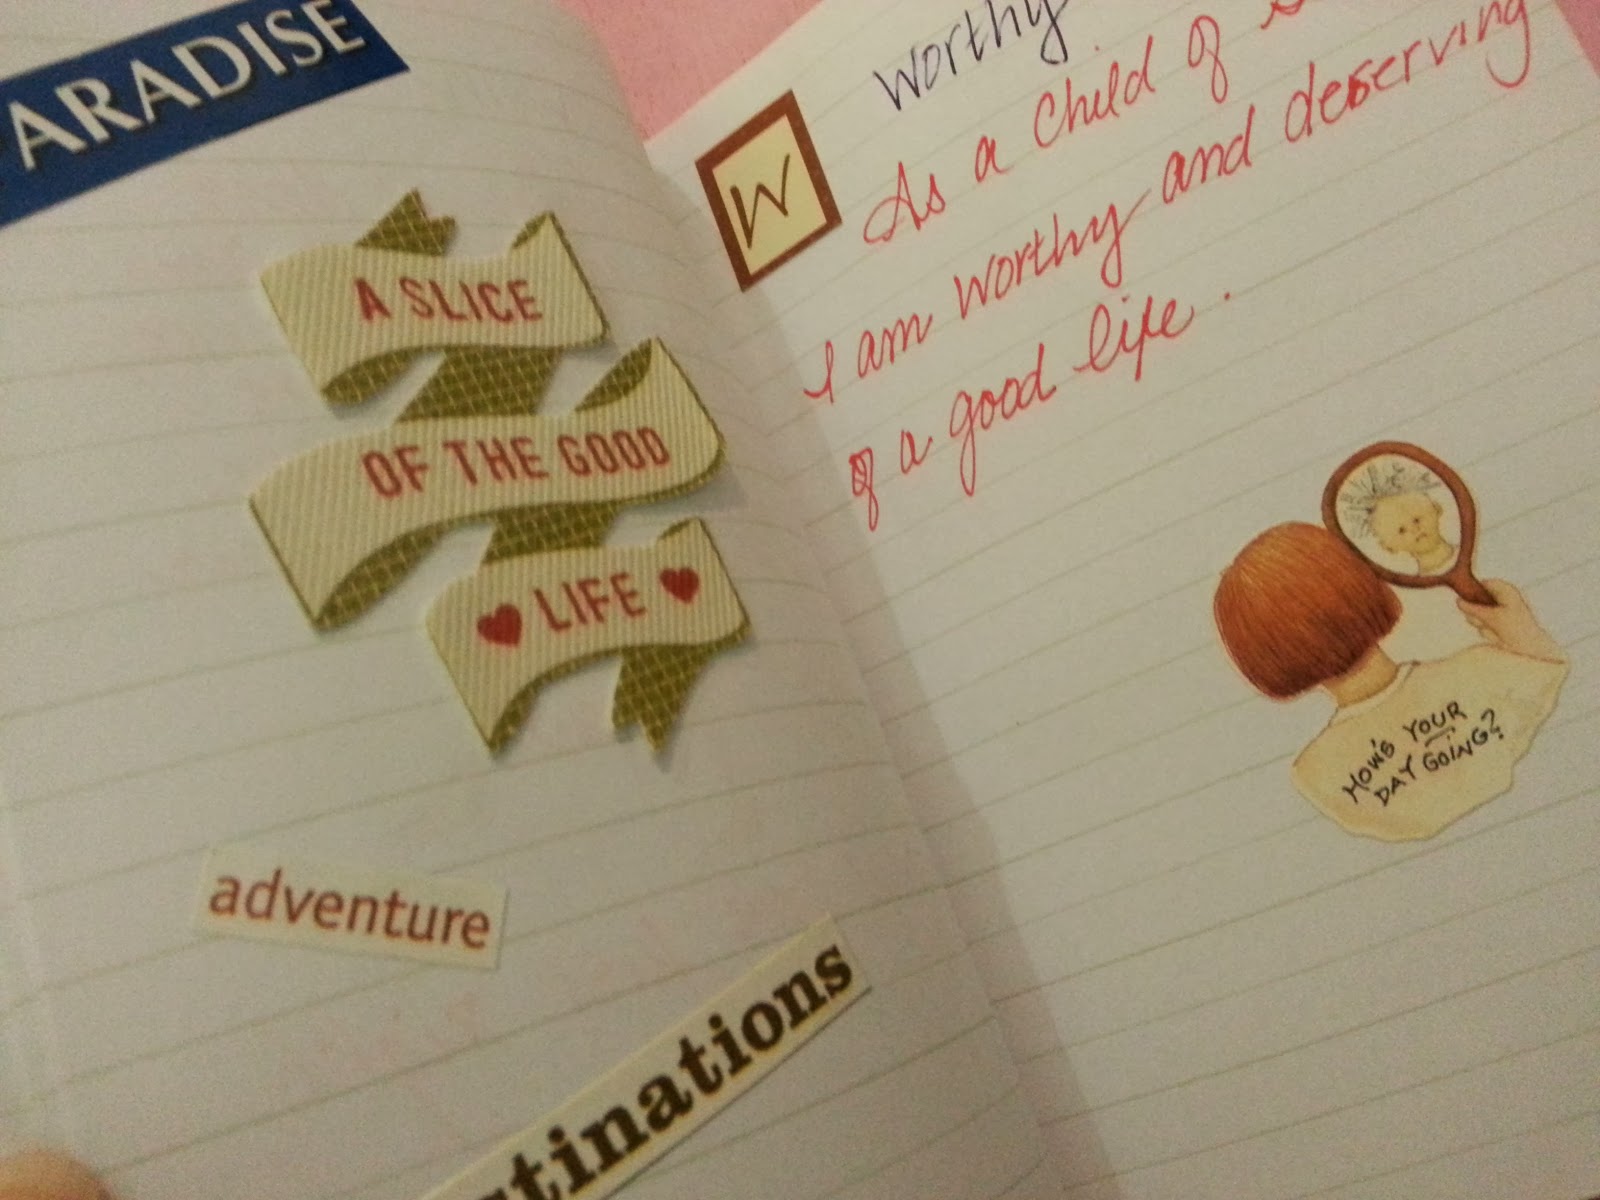 PARADISE
A SLICE
OF THE GOOD
LIFE
adventure
stinations
Worthy
W
As a Child of
I am worthy and deserving
of a good life.
HOW'S YOUR
DAY GOING?